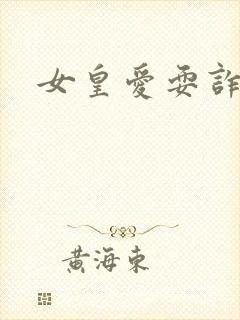 女皇愛耍詐
黃海東